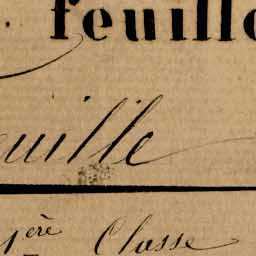 feuill
uille
1ère Classe